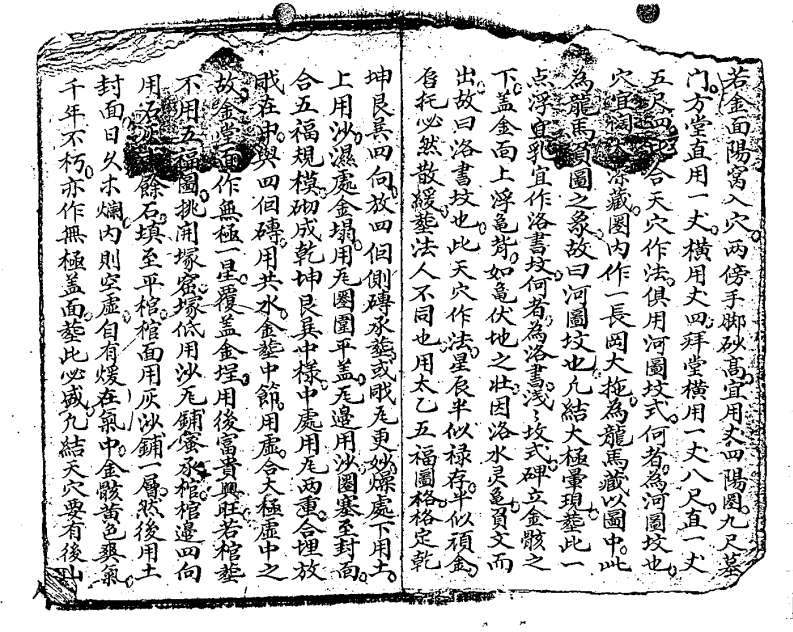 若金面陽窩入穴兩傍手脚砂髙宜用丈四陽圏九尺墓
門方堂直用一丈橫用丈四拜堂橫用一丈八尺直一丈
五尺四 合天穴作法俱用河圖坟式何者為河圖坟也
穴宜 深藏圏内作一長岡大拖為龍馬藏以圖中此
為龍馬負圖之象故曰河圖坟也凢結大極暈現塟此一
点浮直乳宜作洛書坟何者為洛書浅〻坟式碑立金骸之
下盖金面上浮亀背如亀伏地之壯因洛水灵亀負文而
出故曰洛書坟也此天穴作法星辰半似禄存半似頑金
唇托必然散緩塟法人不同也用太乙五福圖格格定乾
坤艮巽四向放四個側磚承塟或戝瓦更妙燥處下用土
上用沙濕處金塌用瓦圏圍平盖瓦邉用沙圏塞至封面
合五福規模砌成乾坤艮巽中樣中處用瓦两重合埋放
戝在中與四個磚用共水金塟中節用虛合大極虛中之
故金堂面作無極一星覆盖金埕用後富貴興旺若棺塟
不用五福圖挑開塚窰塚低用沙瓦鋪窰承棺棺邉四向
用石灰 餘石填至平棺棺面用灰沙鋪一層然後用土
封面日久木爛内則空虛自有煖在氣中金骸黄色爽氣
千年不朽亦作無極盖面塟此必感凢結天穴要有後山